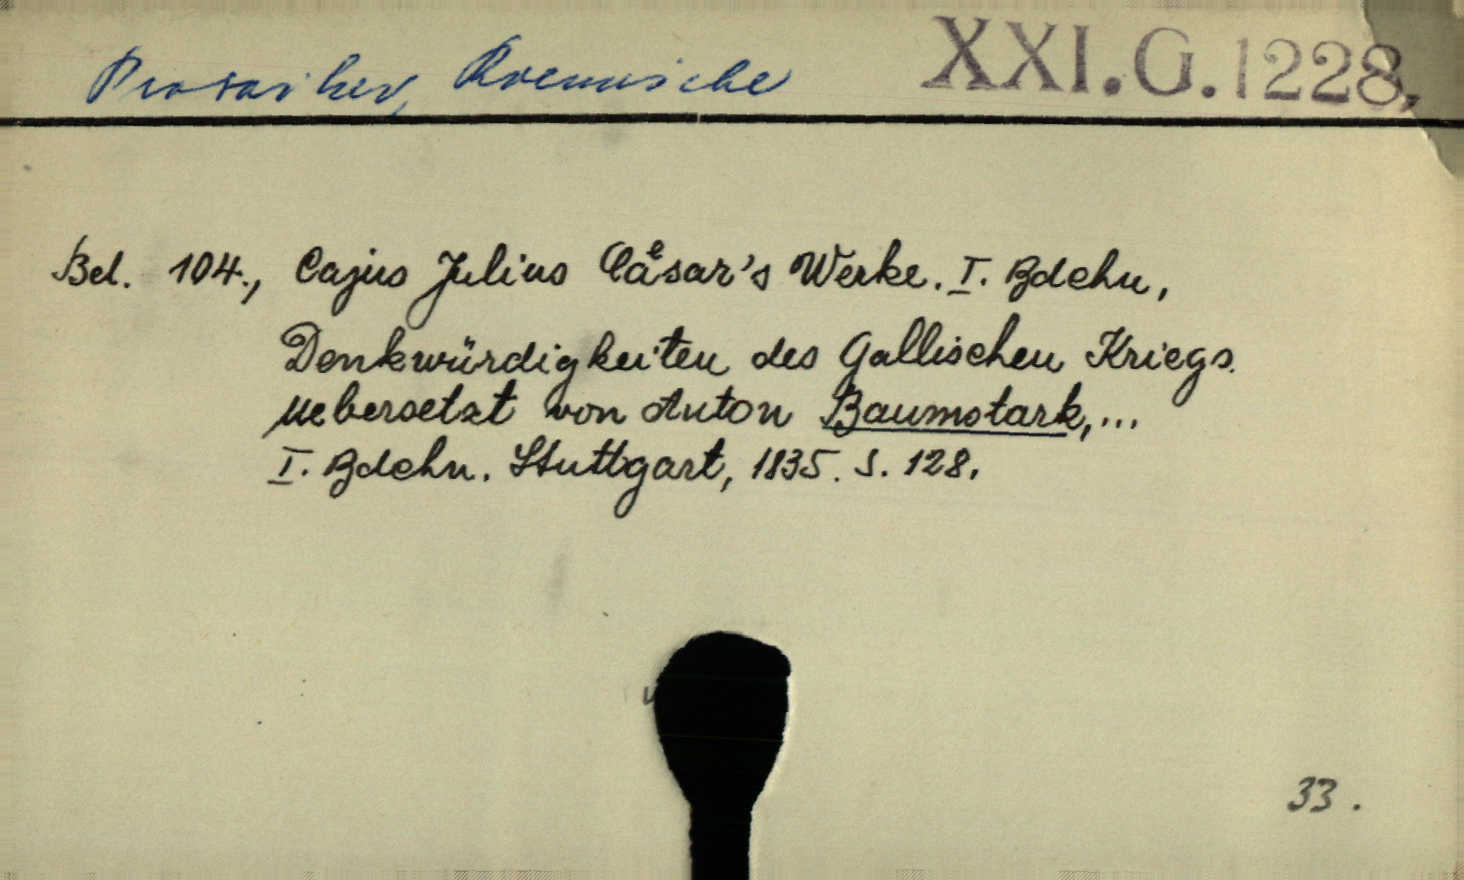 Prosaiker, Roemische XXI.G.1228,
Bd. 104., Cajus Julius Caͤsar's Werke. I. Bdchn,
Denkwürdigkeiten des Gallischen Kriegs.
Uebersetzt von Anton Baumstark,...
I. Bdchn. Stuttgart, 1835. S. 128.
33.